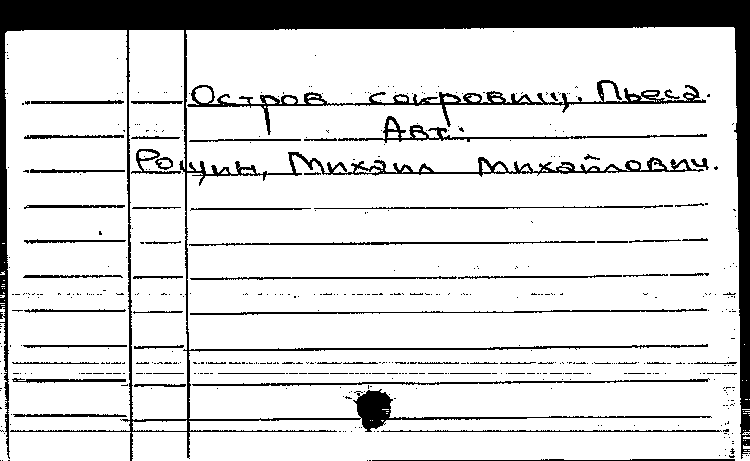 Остров сокровищ. Пьеса.
Авт.:
Рощин, Михаил Михайлович.